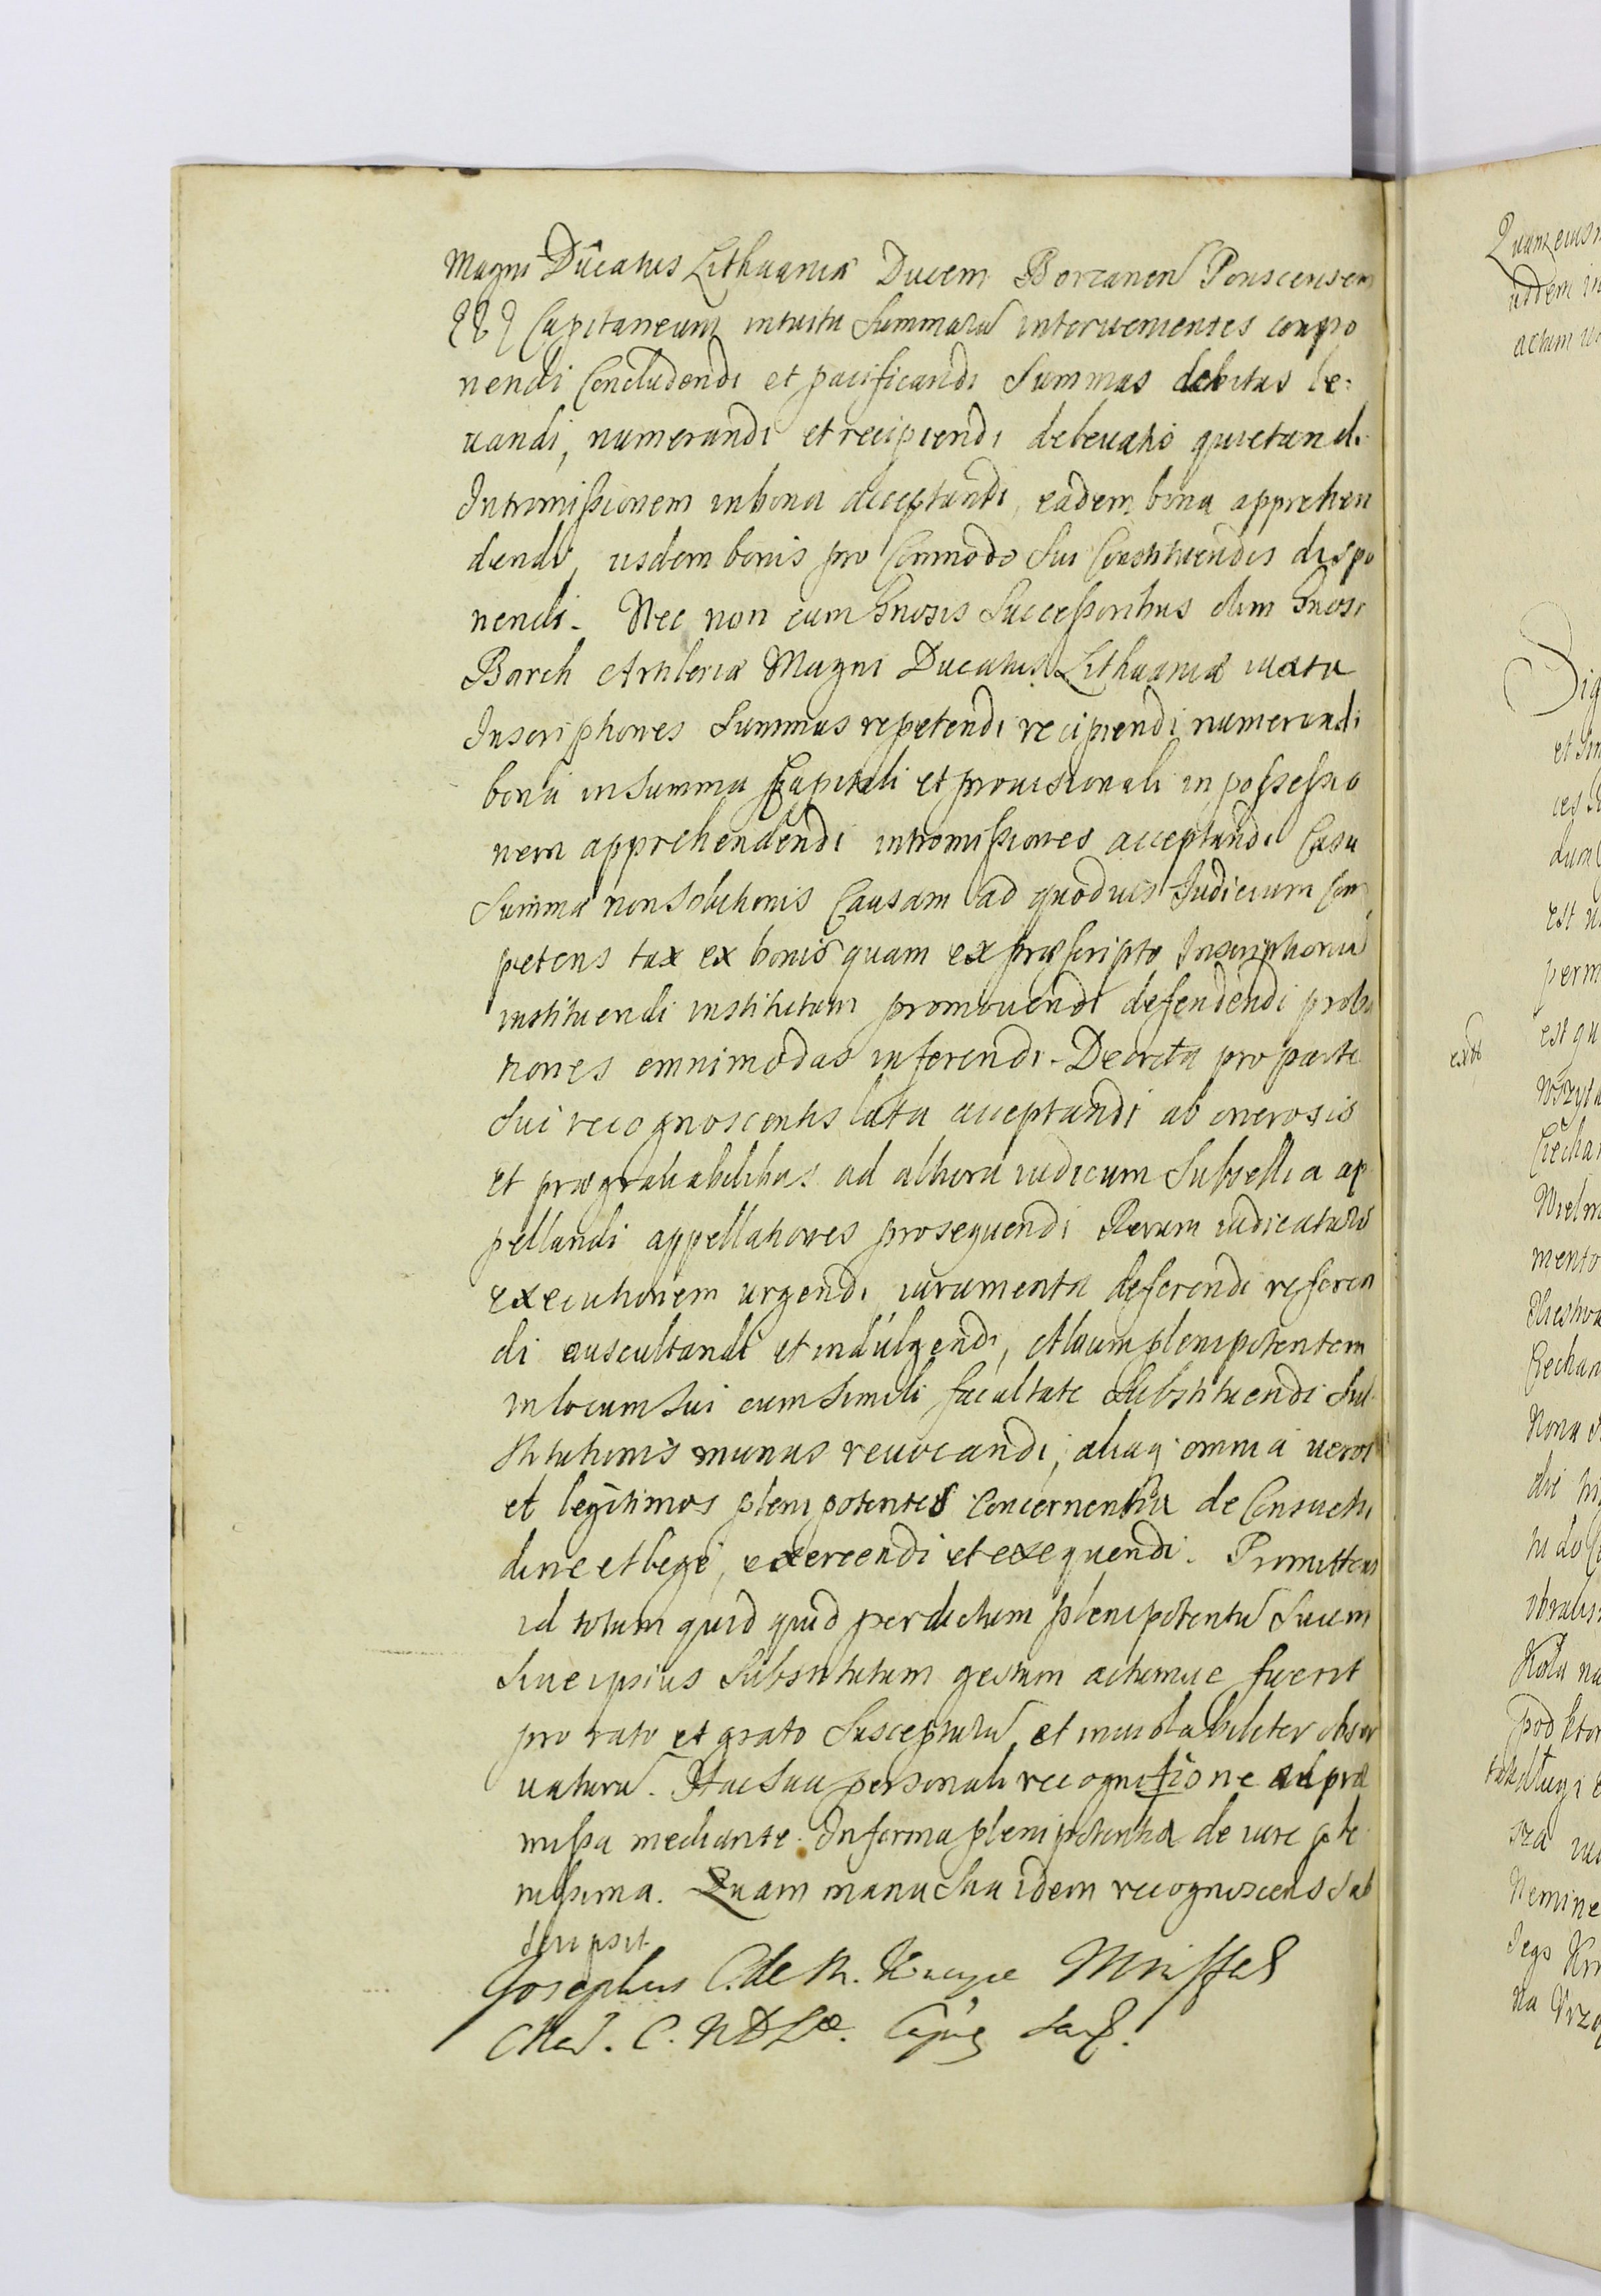 Magni Ducatus Lithuaniæ Ducem Borcianen Ponscensem
Capitaneum intuitu Summaru intervenientes compo
nendi Concludendi et pacificandi Summas debitas le:
vandi, numerandi et recipiendi de levatis quietandi
Intromissionem in bona acceptandi, eadem bona apprehen
dendi, iisdem bonis pro Commodo sui Constituendis dispo
nendi. Nec non cum Gnosis Successoribus olim Gnosi
Barch Artileriæ Magni Ducatus Lithuaniæ iuxta
Inscriptiones Summas repetendi recipiendi numerandi
bona in Summa Capitali et provisionali in possessio
nem apprehendendi intromissiones acceptandi Casu
Summæ non Solutionis Causam ad quoduis Iudicium Com
petens tax ex bonis quam ex præscripto Inscriptionu
instituendi institutam promovendi defendendi proba
tiones omnimodas inferendi. Decreta pro parte
Sui recognoscentis lata acceptandi ab onerosis
et prægravabilibus ad altiora iudicum Subsellia ap
pellandi appellationes prosequendi Rerum iudicataru
executionem urgendi iuramenta deferendi referen
di auscultandi et indulgendi, Alium plenipotentem
in locum Sui cum Simili facultate Substituendi Sub
stitutionis munus revocandi, aliaq omnia veros
et legitimos plenipotentes Concernentia de Consuetu
dine et lege, exercendi et exequendi. Promittens
id totum quid quid per dictum plenipotentu Suum
Sive ipsius Substitutum gestum actumve fuerit
pro rato et grato Suscepturu et inviolabiliter obser
vaturu. Hac Sua personali recognitione ad præ
missa mediante. In forma plenipotentiæ de iure ple
nissima. Quam manu Sua idem recognoscens Sub
scripsit.
Josephus C. de M.
C. MDL.
Quam eius
actum
Dig
et
est
perm
est qu
extt
Wielm
mento
Nona
die
Nemine
Jego
na